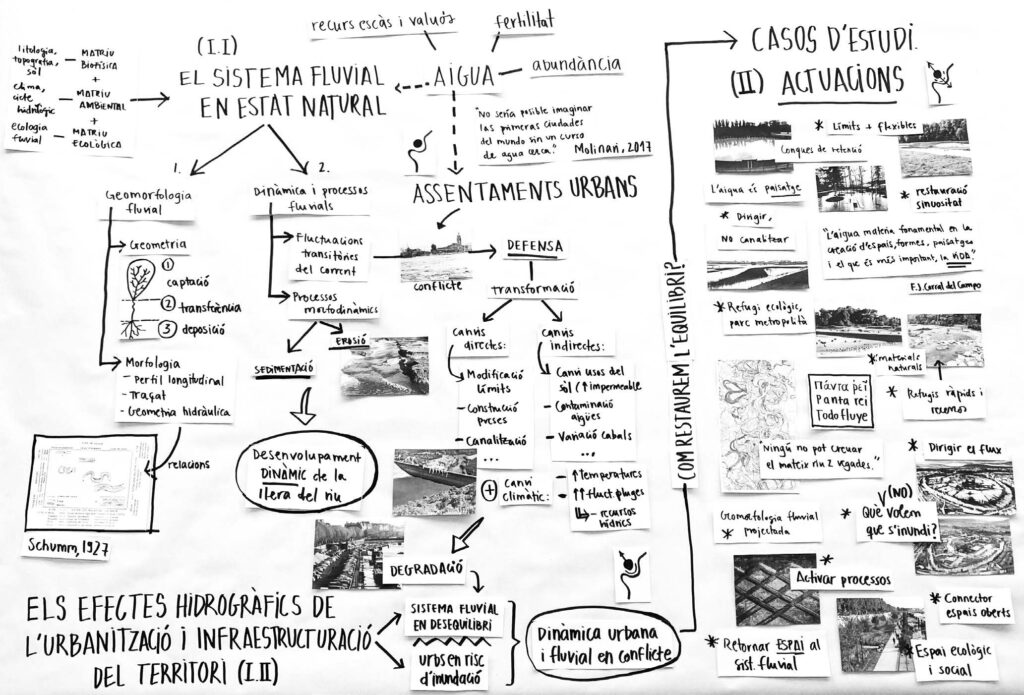 recurs escàs i valuós
fertilitat
AIGUA
abundància
litologia,
topografia,
sòl
MATRIU
BIOFÍSICA
+
clima,
cicle
hidrològic
MATRIU
AMBIENTAL
+
ecologia
fluvial
MATRIU
ECOLÒGICA
(I.I)
EL SISTEMA FLUVIAL
EN ESTAT NATURAL
"No sería posible imaginar
las primeras ciudades
del mundo sin un curso
de agua cerca."
Molinari, 2017
1.
Geomorfologia
fluvial
Geometria
1
captació
2 transferència
3 deposició
Morfologia
- Perfil longitudinal
- Traçat
- Geometria hidràulica
relacions
Schumm, 1927
2.
Dinàmica i processos
fluvials
Fluctuacions
transitòries
del corrent
Processos
morfodinàmics
EROSIÓ
SEDIMENTACIÓ
Desenvolupament
DINÀMIC de la
llera del riu
ASSENTAMENTS URBANS
conflicte
DEFENSA
transformació
canvis
directes:
Modificació
límits
- Construcció
preses
- Canalització
...
canvis
indirectes:
Canvi usos del
sòl (↑ impermeable)
- Contaminació
aigües
- Variació cabals
...
+ Canvi
climàtic:
- ↑ temperatures
- ↑↑ fluct. pluges
↳ - recursos
hídrics
DEGRADACIÓ
ELS EFECTES HIDROGRÀFICS DE
L'URBANITZACIÓ I INFRAESTRUCTURACIÓ
DEL TERRITORI (I.II)
SISTEMA FLUVIAL
EN DESEQUILIBRI
urbs en risc
d'inundació
Dinàmica urbana
i fluvial en conflicte
COM RESTAUREM L'EQUILIBRI?
CASOS D'ESTUDI.
(II) ACTUACIONS
* Límits + flexibles
Conques de retenció
L'aigua és paisatge
* restauració
sinuositat
* Dirigir,
NO canalitzar
"L'aigua matèria fonamental en la
creació d'espais, formes, paisatges
i el que és més important, la VIDA"
F.J. Corral del Campo
* Refugi ecològic,
parc metropolità
* materials
naturals
* Refugis ràpids i
recernos
Πάντα ῥεῖ
Panta rei
Todo fluye
"Ningú no pot creuar
el mateix riu 2 vegades."
* Dirigir el flux
(NO)
* Què volem
que s'inundi?
Geomorfologia fluvial
* projectada
*
Activar processos
* Connector
espais oberts
* Retornar ESPAI al
sist. fluvial
* Espai ecològic
i social